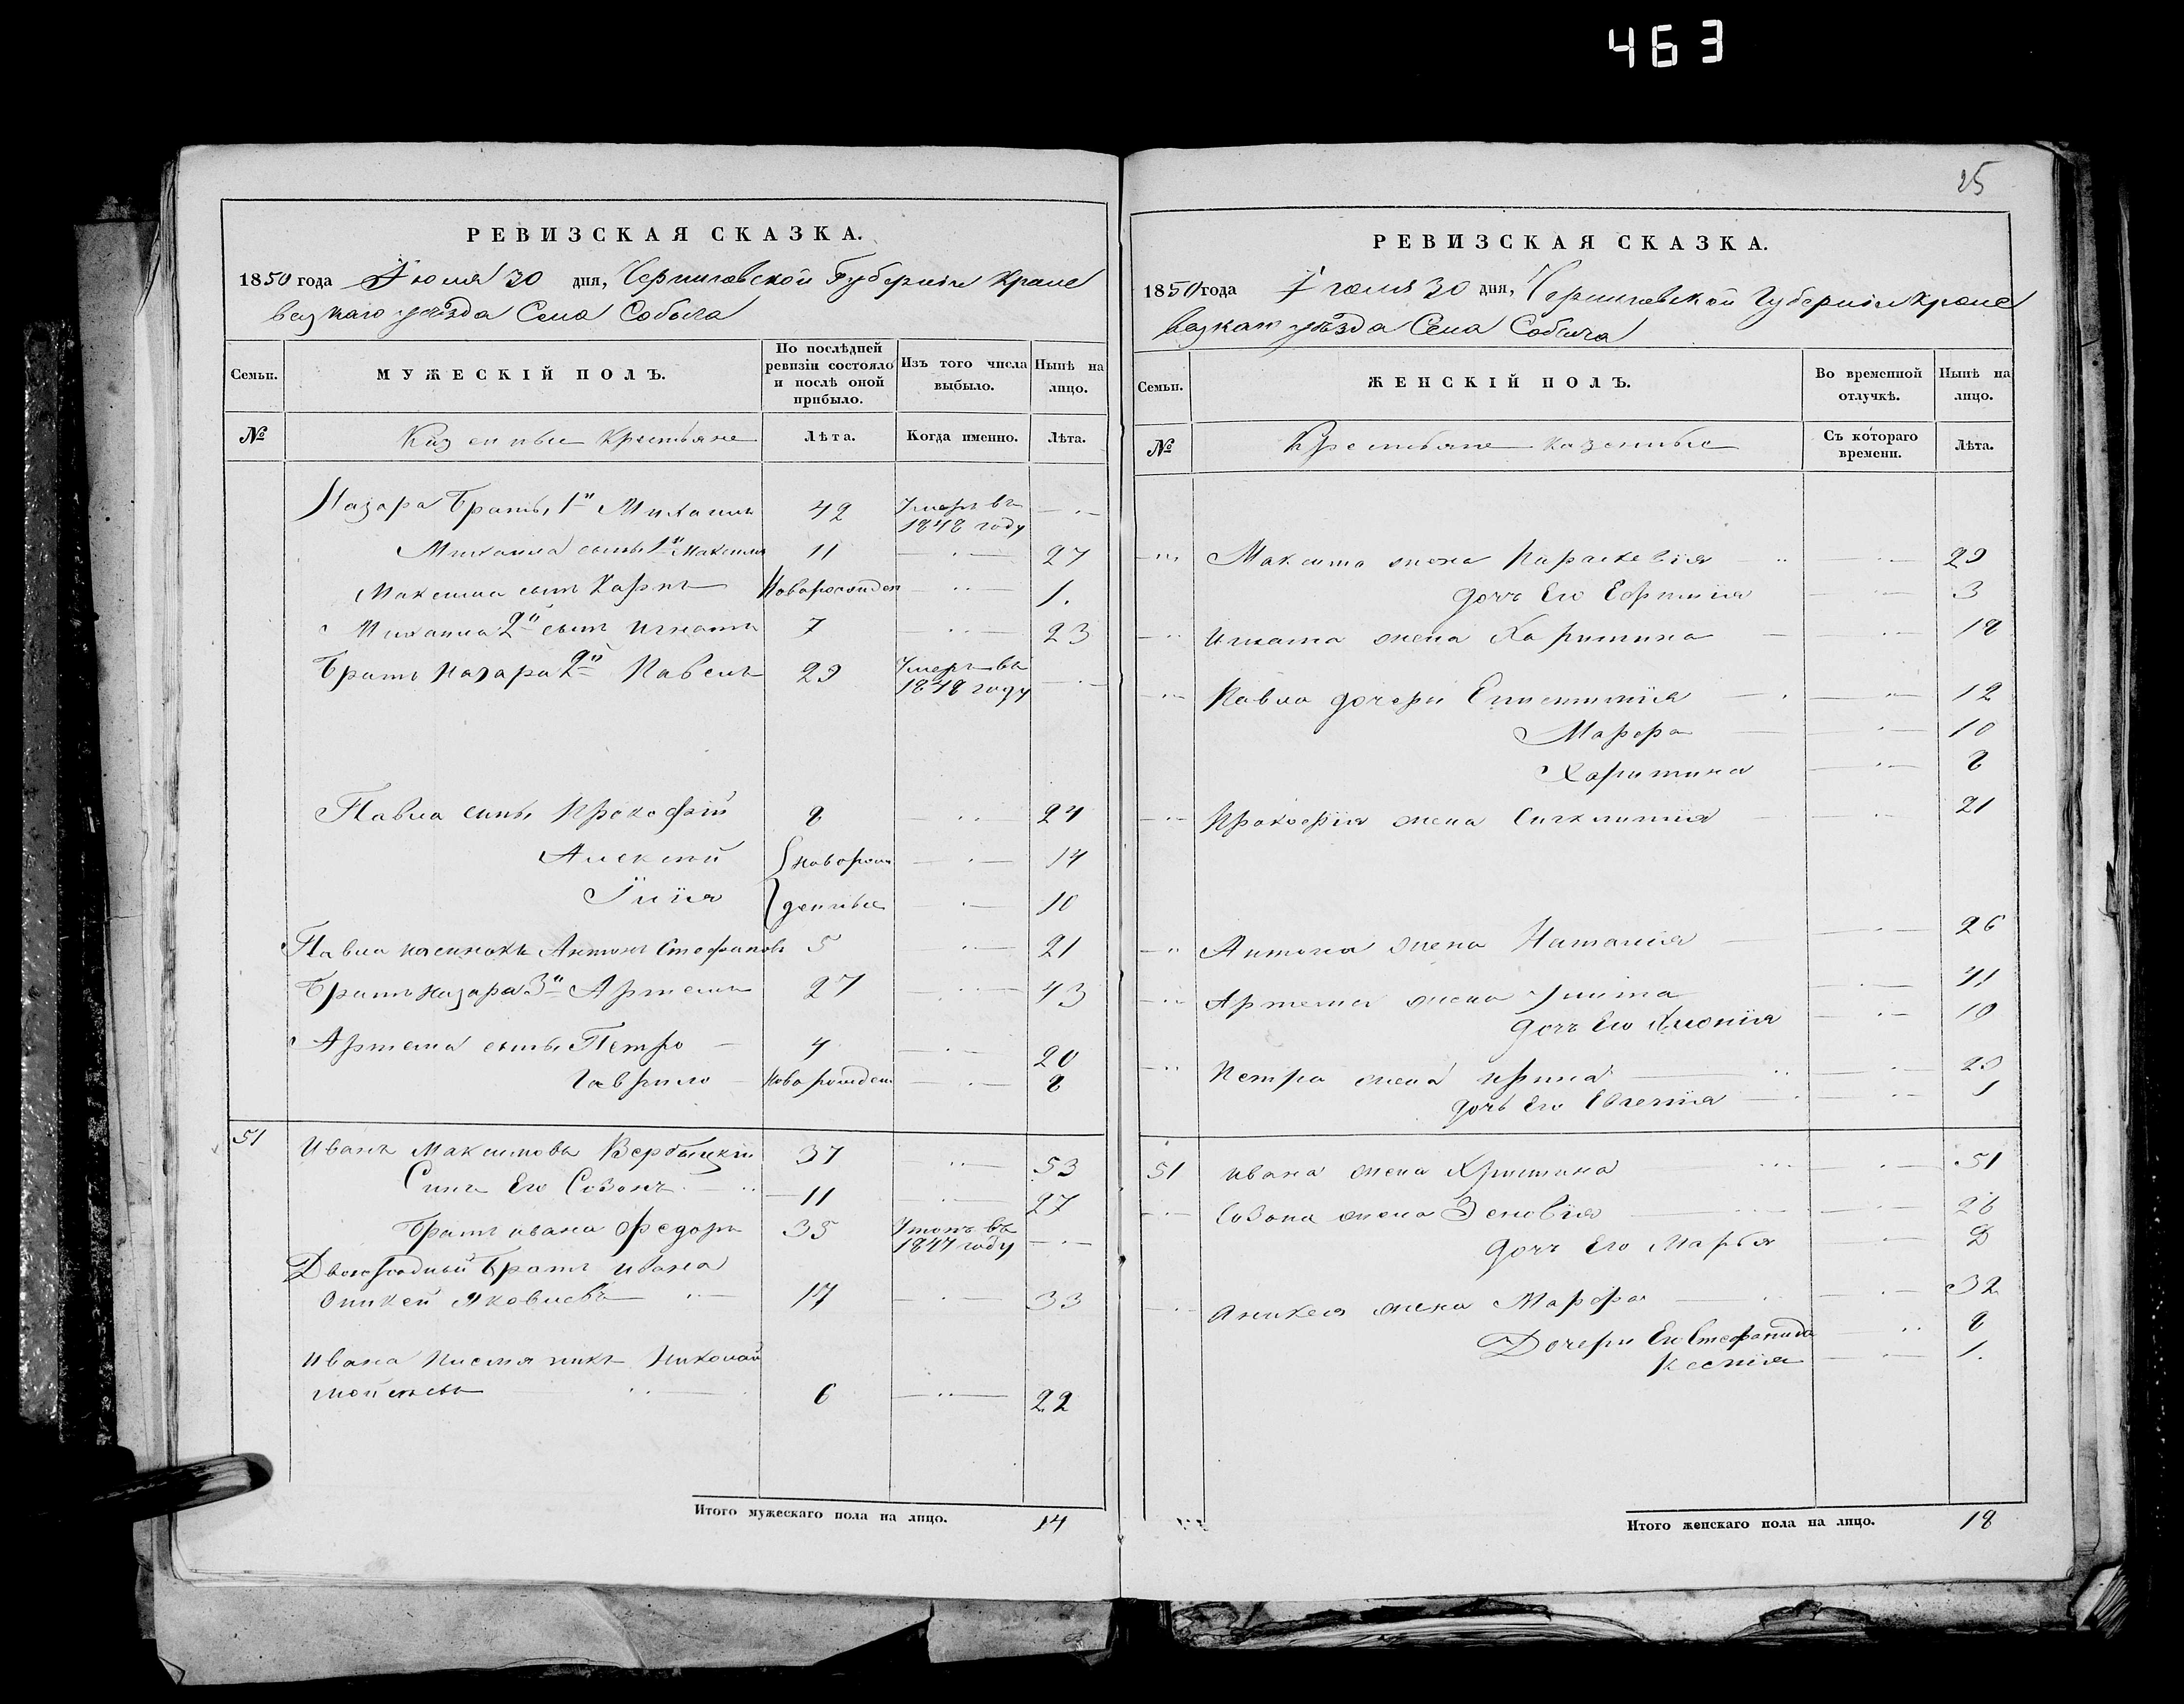 463
РЕВИЗСКАЯ СКАЗКА.
1850 года Июля 30 дня, Черниговской Губернии Кроле
вецкаго уѣзда Села Собыча
Семьи. МУЖЕСКІЙ ПОЛЪ. По послѣдней ревизіи состояло и послѣ оной прибыло. Изъ того числа выбыло. Нынѣ на лицо.
№ Казенные Крестьяне Лѣта. Когда именно. Лѣта.
Назара Братъ 1й Михаилъ 42 Умеръ въ 1848 году
Михаила сынъ 1й Максимъ 11 27
Максима сынъ Карпъ Новорожден 1.
Михаила 2й сынъ Игнатъ 7 23
Братъ Назара 2й Павелъ 29 Умеръ въ 1848 году
Павла сынъ Прокофій 8 24
Алексѣй новорож 14
Илія денные 10
Павла пасинокъ Антонъ Стефановъ 5 21
Братъ Назара 3й Артемъ 27 43
Артема сынъ Петро 4 20
Гаврило Новорожден 8
51 Иванъ Максимовъ Вербыцкій 37 53
Синъ Его Созонъ 11 27
Братъ Ивана Федоръ 35 1847 году
Двоюродный Братъ Ивана
Оникей Яковлевъ 17 33
Ивана Племянникъ Николай
Мойсѣевъ 6 22
Итого мужескаго пола на лицо. 14
25
РЕВИЗСКАЯ СКАЗКА.
1850 года Июля 30 дня, Черниговской Губерніи Кроле
вецкаго уѣзда Села Собича
Семьи. ЖЕНСКІЙ ПОЛЪ. Во временной отлучкѣ. Нынѣ на лицо.
№ Крестьяне казенные Съ котораго времени. Лѣта.
Максима жена Параскевія 29
дочь Его Ефимія 3
Игната жена Харитина 18
Павла дочери 12
Марфа 10
Харитина 8
Прокофія жена Сигклитія 21
Антона жена Наталія 26
Артема жена Улита 41
дочь Его 10
Петра жена Ирина
дочь Его Евгенія 1
51 Ивана жена Христина 51
Созона жена Зеновія 26
дочь Его Марья
Аникея жена Марфа 32
Дочери Его Стефанида 8
Ксенія 1.
Итого женскаго пола на лицо. 18